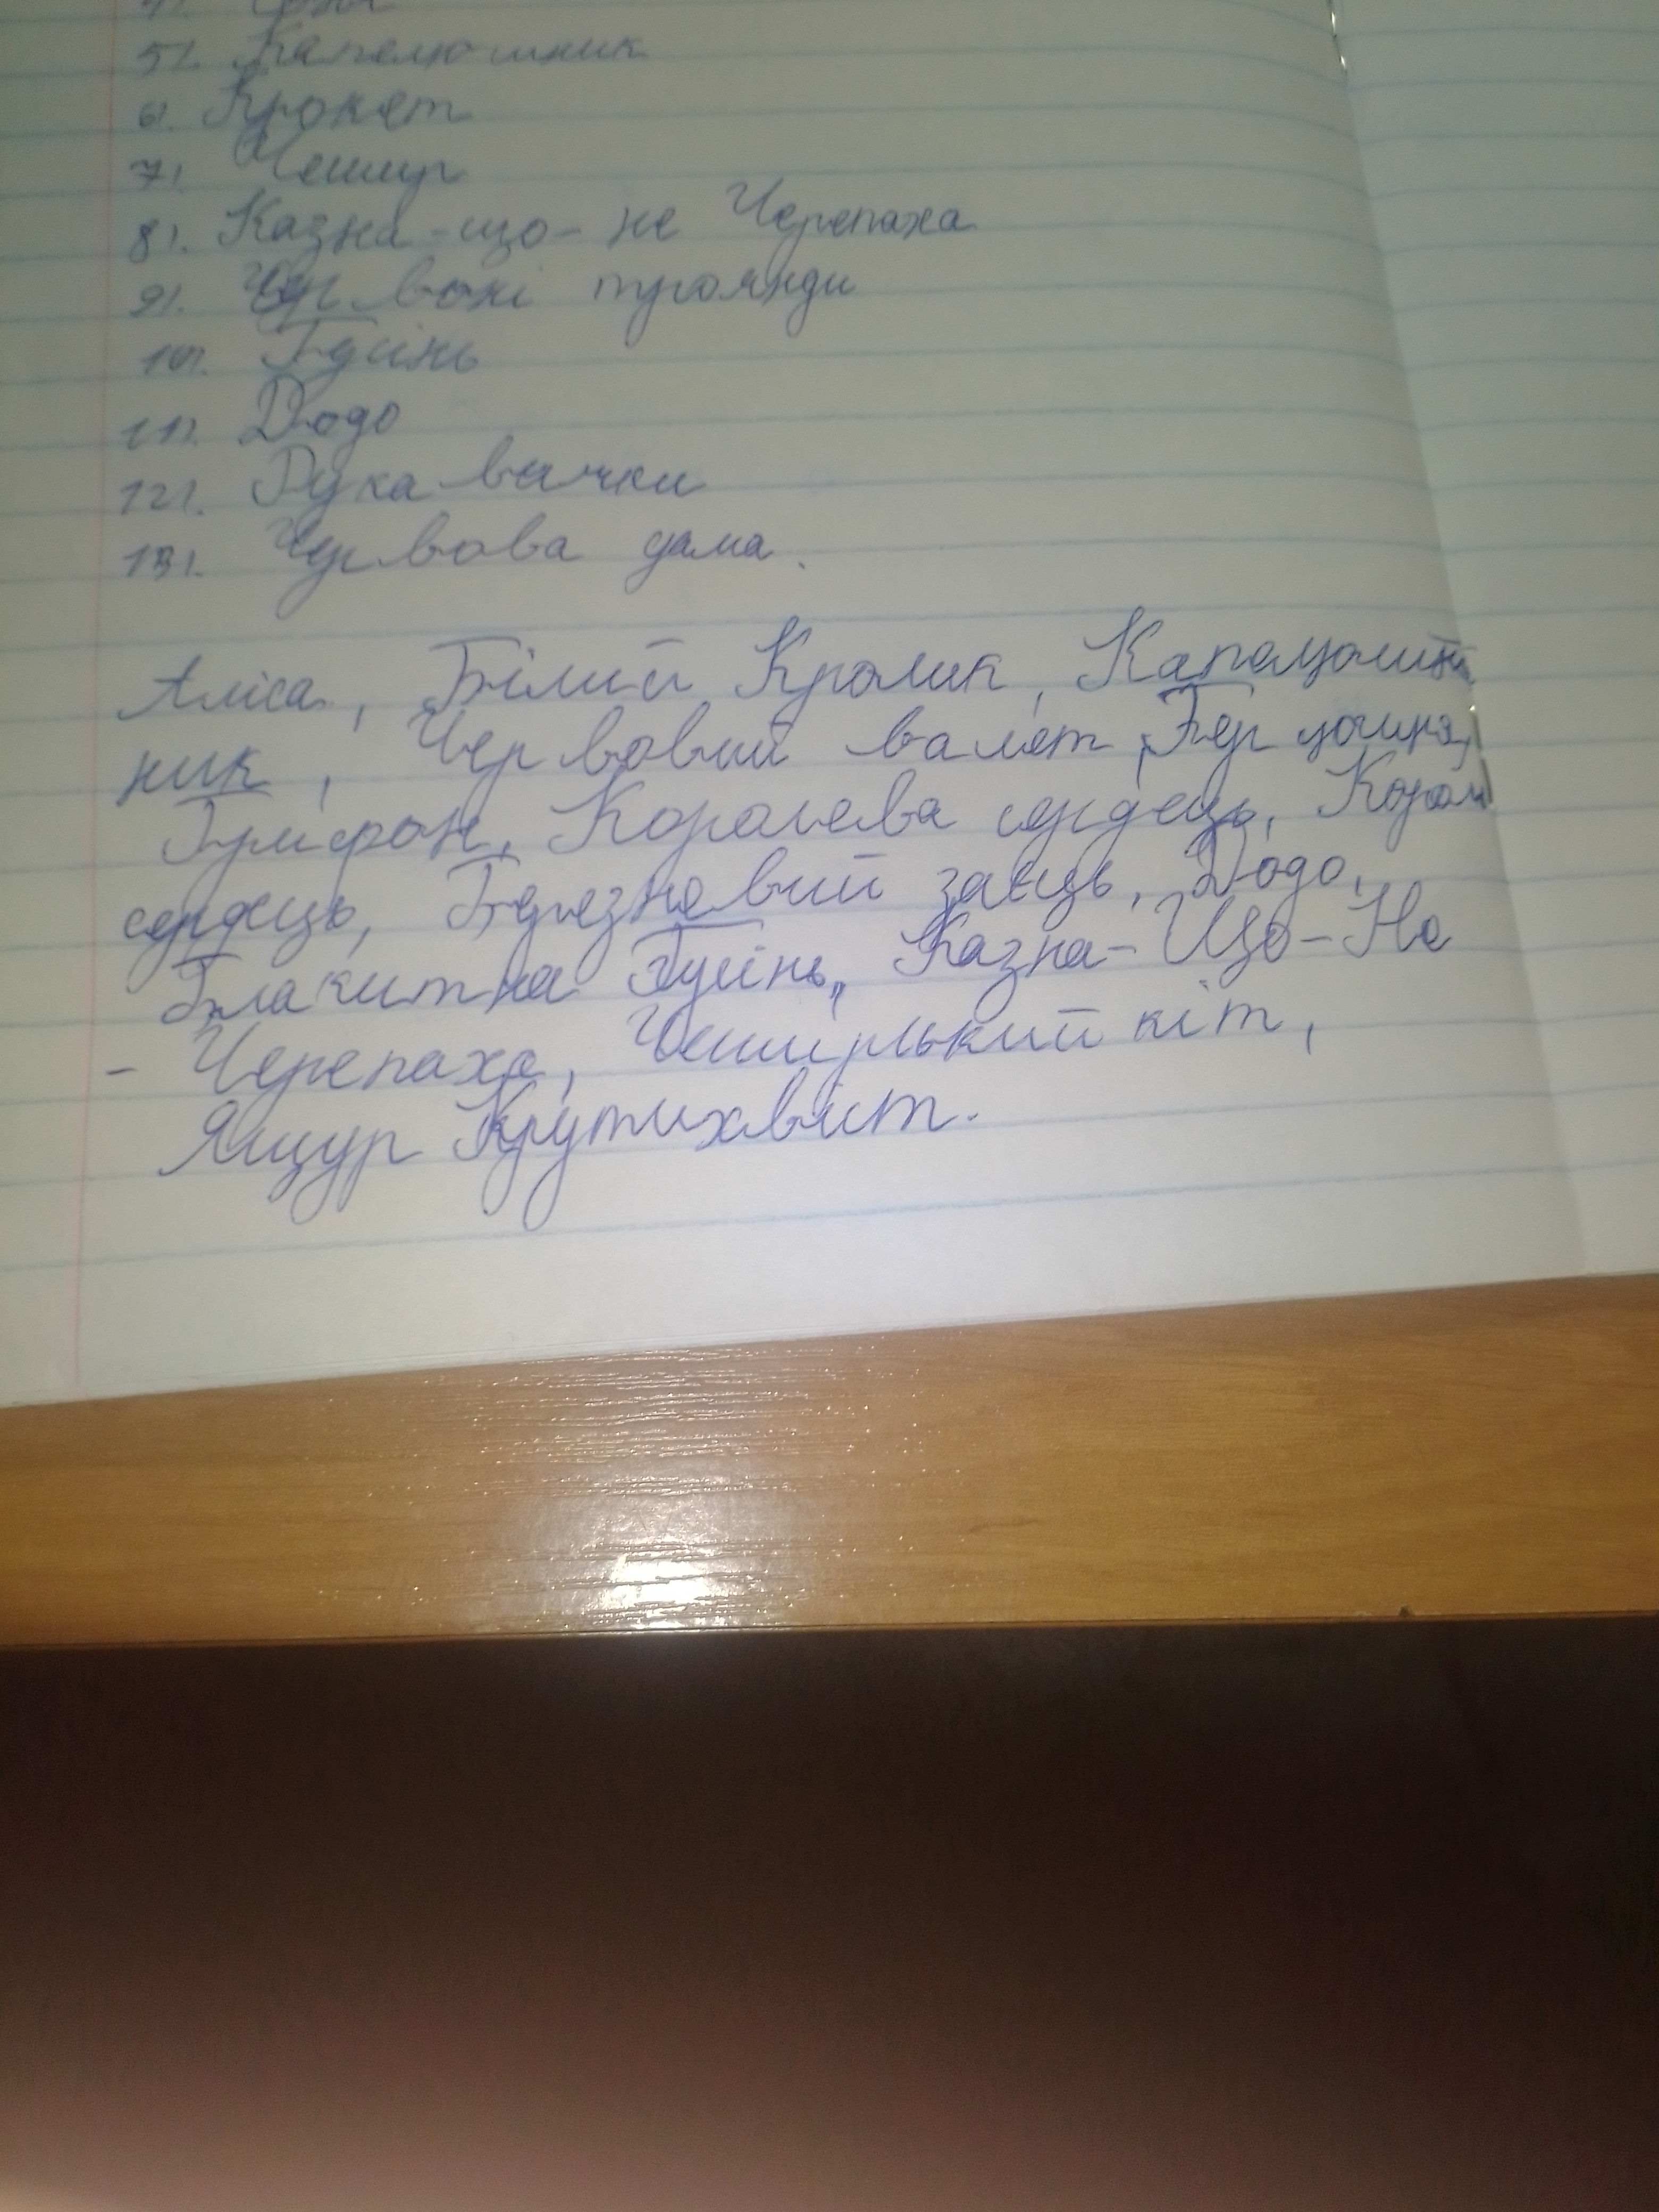 5). Капелюшник
6). Крокет
7). Чешир
8). Казна-що-не Черепаха
9). Червоні троянди
10). Гуінь
11). Додо
12). Рукавички
13). Червова дама.
Аліса, Білий Кролик, Капелюшн
ник, Червовий валет, Герцогиня,
Грифон, Королева сердець, Король
сердець, Березневий заєць, Додо,
Блакитна Гуінь, Казна-Що-Не
- Черепаха, Чеширський кіт,
Ящур Крутихвіст.